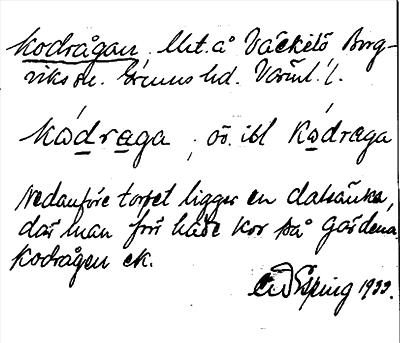 Kodrågan, Utt. å Väckelö Borg-
viks sn. Grums hd. Värml. l.
kódraga, oo. ibl Kodraga
Nedanföre torpet ligger en dalsänka,
där man förr hade kor på Gärdena
Kodrågen ek.
Espling 1933.